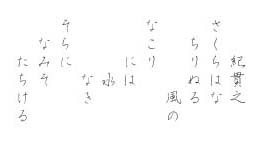 紀貫之
さくらはな
ちりぬる
風の
なこり
には
水
なき
そらに
なみそ
たちける